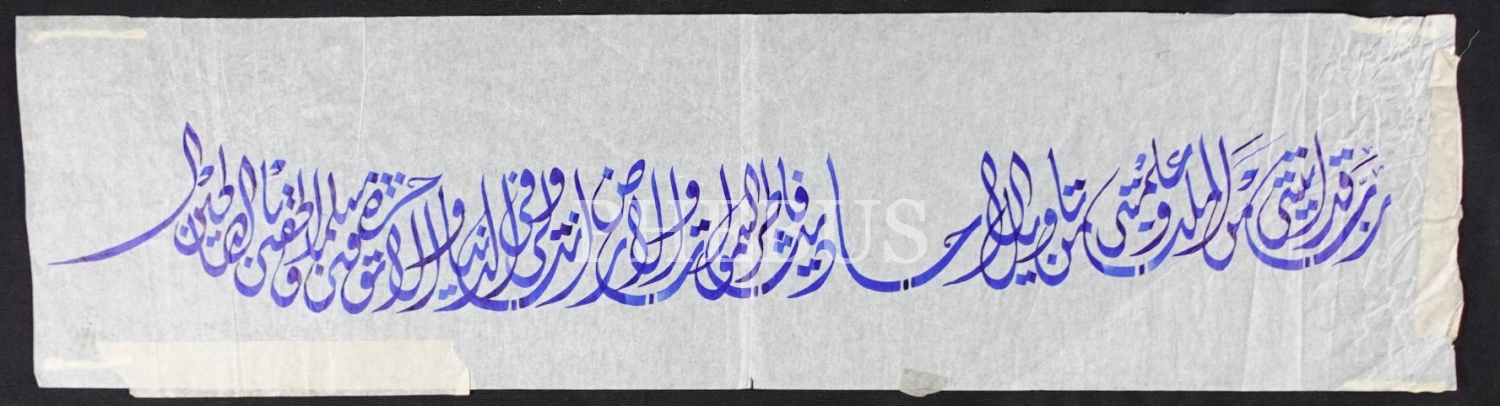 رب قد اتيتنى من الملك وعلمتنى من تاويل الاحاديث فاطر السموات والارض انت ولى فى الدنيا والاخرة توفنى مسلما والحقنى بالصالحين
PHEBUS